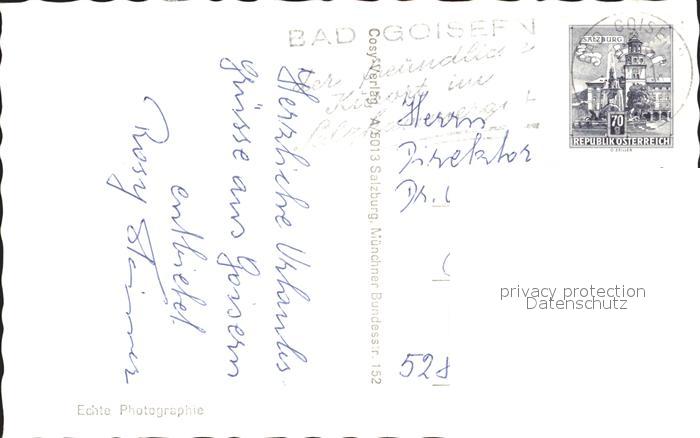 BAD GOISERN
Der freundliche
Kurort im
SALZBURG
70
REPUBLIK ÖSTERREICH
GOISE
Herrn
Direktor
Dr.
528
Herzliche Urlaubs-
grüsse aus Goisern
entbietet
Rosy Steiner
Cosy-Verlag, A/5013 Salzburg, Münchner Bundesstr. 152
Echte Photographie
privacy protection
Datenschutz